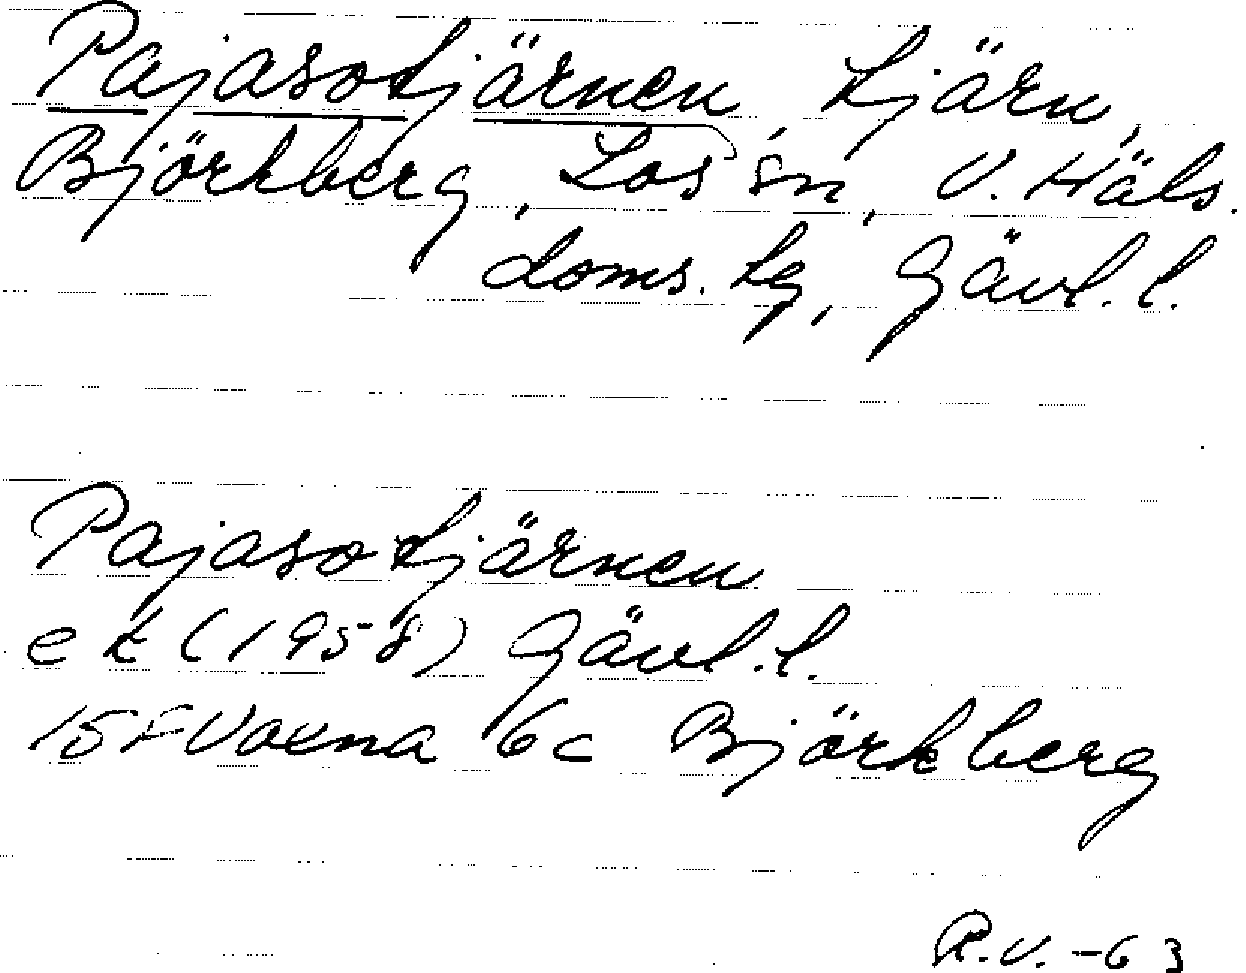 Pajasotjärnen, tjärn,
Björkberg, Los sn, V. Häls.
doms. lg, Gävl. l.
Pajasotjärnen
ek (1958) Gävl. l.
15F Voxna 6c Björkberg
R.V. -63